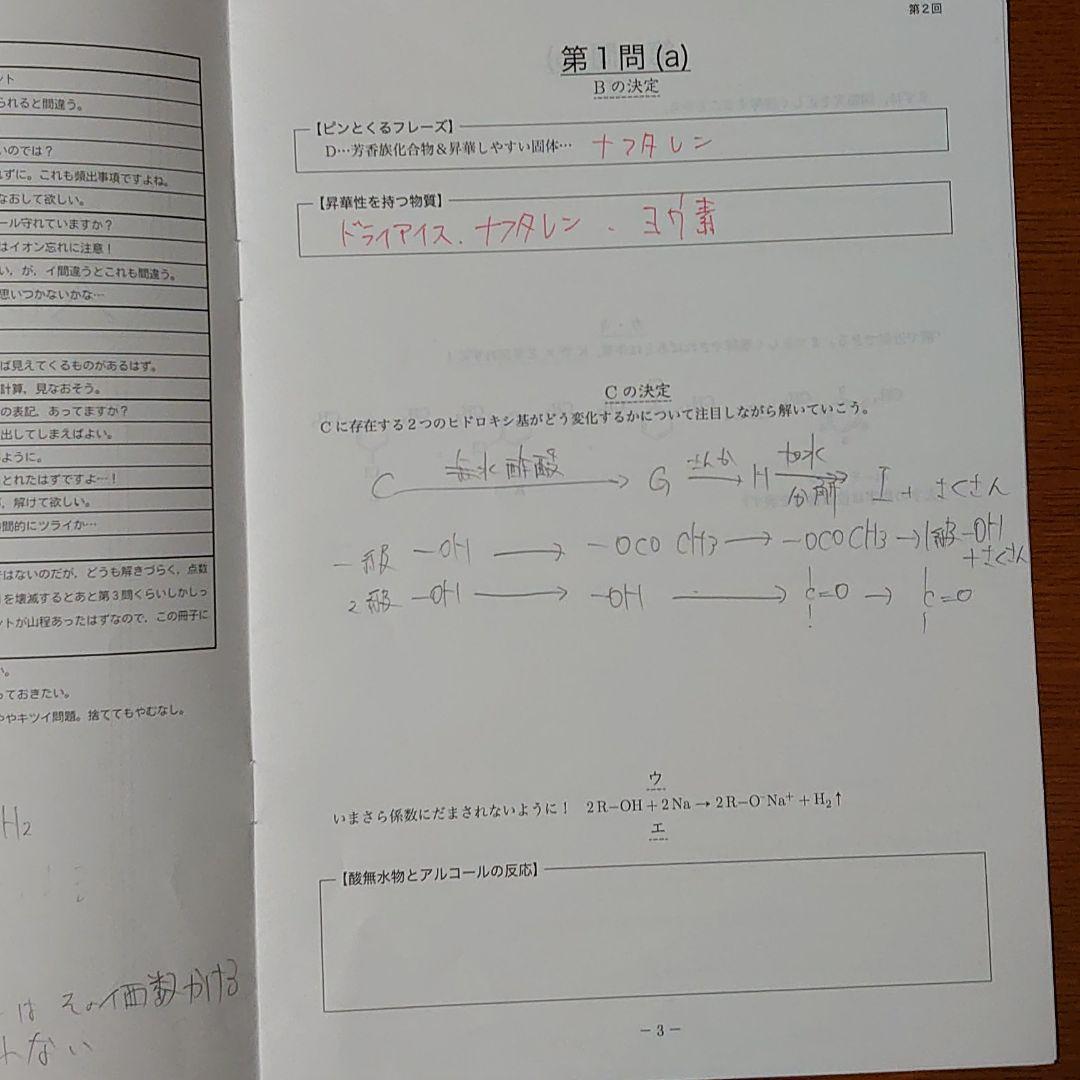 ント
られると間違う。
いのでは？
れずに。これも頻出事項ですよね。
なおして欲しい。
ール守れていますか？
はイオン忘れに注意！
い，が，イ間違うとこれも間違う。
思いつかないかな…
ば見えてくるものがあるはず。
計算，見なおそう。
の表記，あってますか？
出してしまえばよい。
ように。
とれたはずですよ…！
，解けて欲しい。
間的にツライか…
ではないのだが，どうも解きづらく，点数
を壊滅するとあと第３問くらいしかしっ
ントが山程あったはずなので，この冊子に
い。
っておきたい。
ややキツイ問題。捨ててもやむなし。
H2
は その価数かける
れない
第２回
第１問 (a)
B の決定
【ピンとくるフレーズ】
D…芳香族化合物＆昇華しやすい固体… ナフタレン
【昇華性を持つ物質】
ドライアイス．ナフタレン ． ヨウ素
C の決定
C に存在する２つのヒドロキシ基がどう変化するかについて注目しながら解いていこう。
C 無水酢酸→ G さんか→ H 加水分解→ I + さくさん
一級 −OH → −OCO CH3 → −OCOCH3 → 1級−OH + さくさん
2級 −OH → −OH → C=O → C=O
ウ
いまさら係数にだまされないように！ 2R−OH + 2Na → 2R−O⁻Na⁺ + H₂↑
エ
【酸無水物とアルコールの反応】
− 3 −